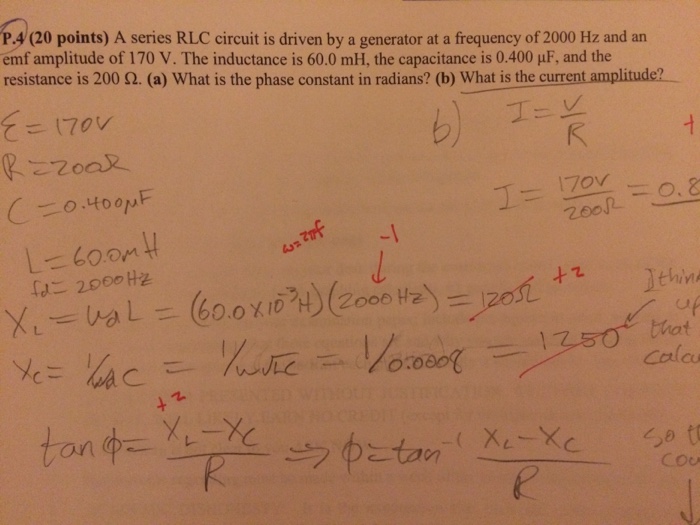 P.4 (20 points) A series RLC circuit is driven by a generator at a frequency of 2000 Hz and an
emf amplitude of 170 V. The inductance is 60.0 mH, the capacitance is 0.400 µF, and the
resistance is 200 Ω. (a) What is the phase constant in radians? (b) What is the current amplitude?
ℰ = 170V
R = 200Ω
C = 0.400µF
L = 60.0mH
fd = 2000Hz
b) I = V/R
+
I = 170V/200Ω = 0.8
ω=2πf
-1
X_L = ωdL = (60.0 x 10^-3 H)(2000Hz) = 120Ω +2
Xc = 1/ωdC = = 1/0.0008 = 1250
I think
up
that
calcu
+2
tanϕ = (X_L - X_C)/R ⇒ ϕ = tan^-1 (X_L - X_C)/R
so th
cou